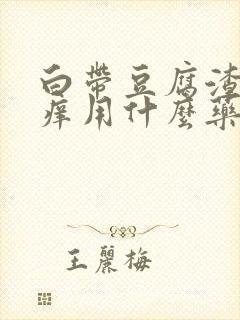 白帶豆腐渣
痒用什麼藥
王麗梅